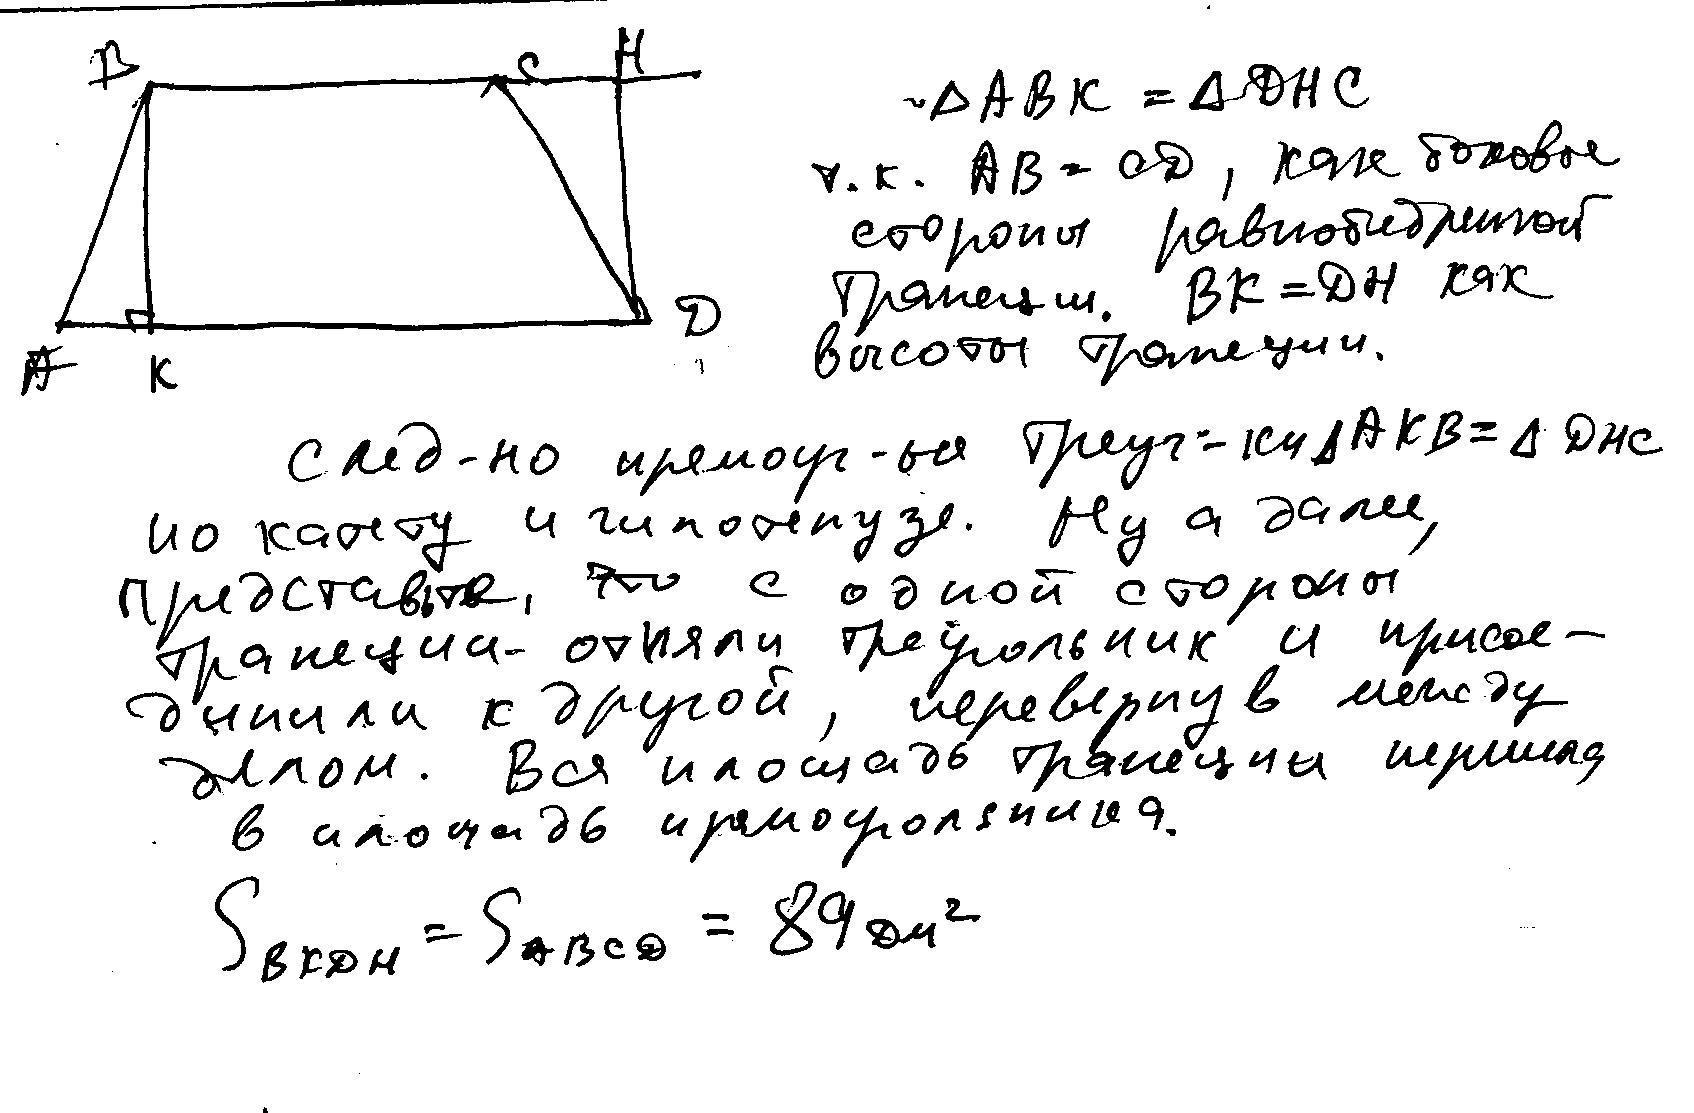 B C H
A K D
∆ ABK = ∆ DHC
т.к. AB = CD, как боковые
стороны равнобедренной
трапеции. BK = DH как
высоты трапеции.
След-но прямоуг-ые треуг-ки ∆ AKB = ∆ DHC
по катету и гипотенузе. Ну а далее,
представьте, что с одной стороны
трапеции - отняли треугольник и присое-
динили к другой, перевернув между
делом. Вся площадь трапеции перешла
в площадь прямоугольника.
S BKDH = S ABCD = 89 дм²